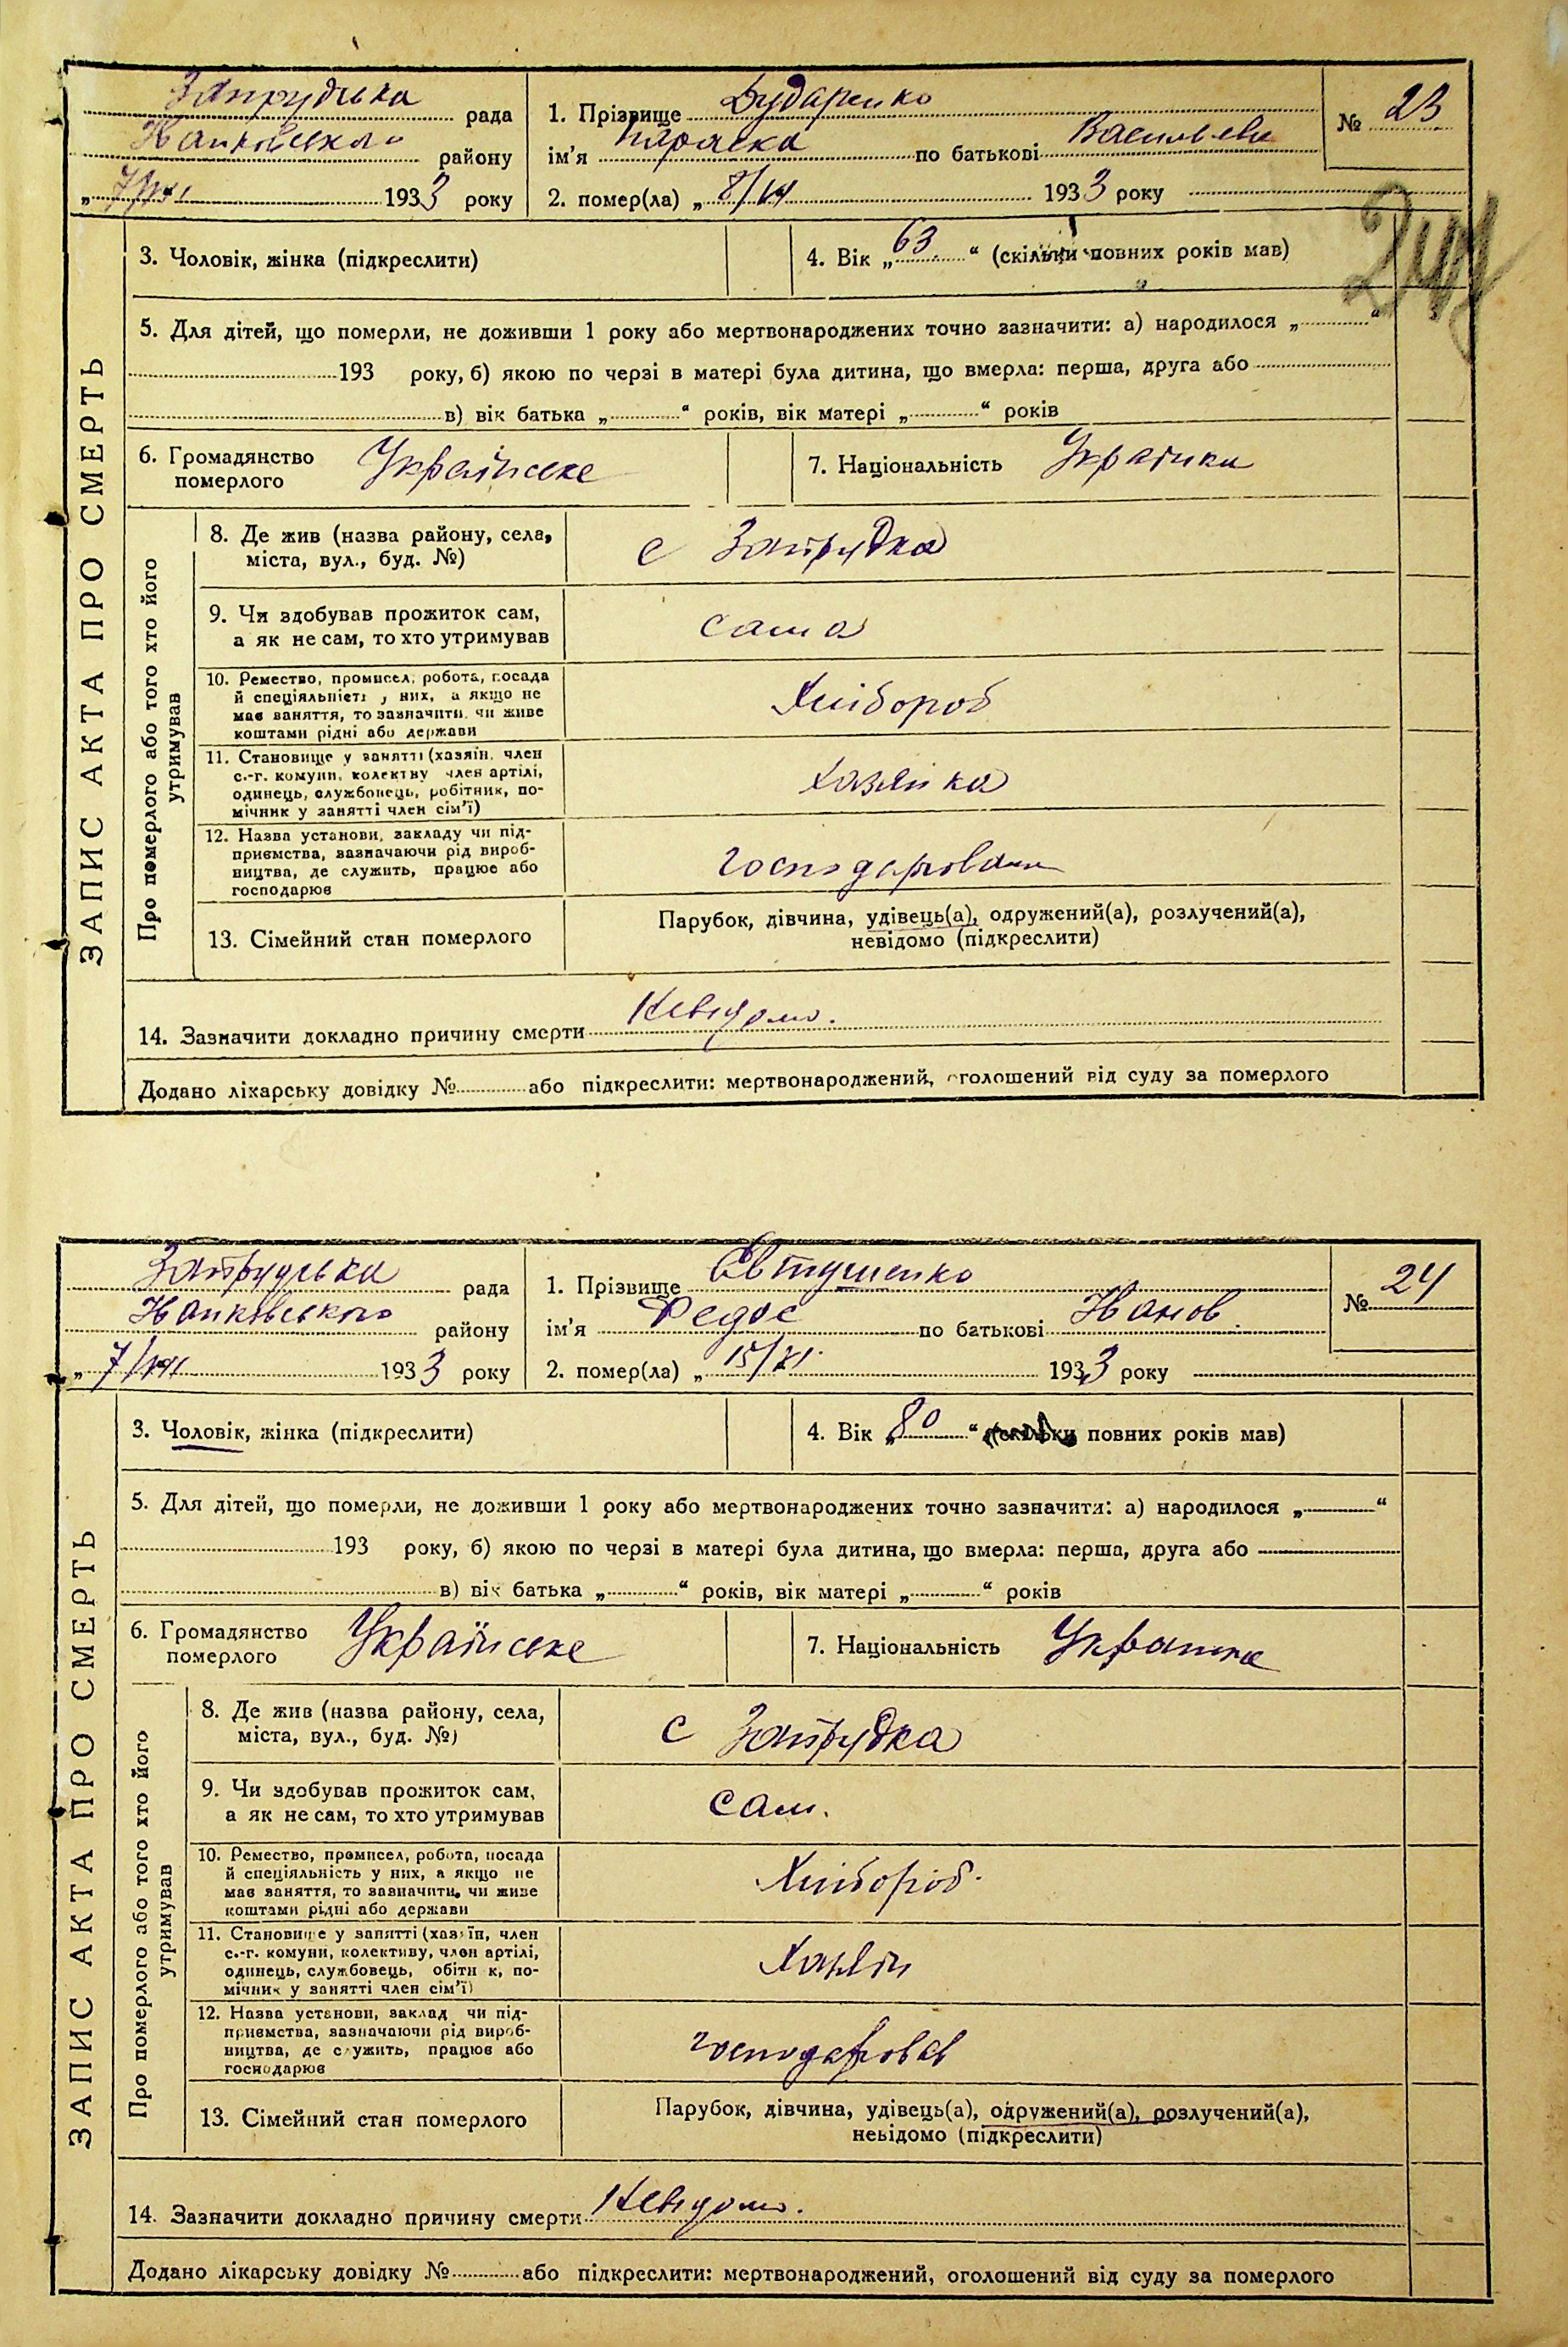 ЗАПИС АКТА ПРО СМЕРТЬ
Запрудська рада
району
1933 року
1. Прізвище Дударенко
ім'я Параска по батькові Василевна
2. помер(ла) „ 8/ 1933 року
№ 23
3. Чоловік, жінка (підкреслити)
4. Вік „ 63 “ (скільки повних років мав)
5. Для дітей, що померли, не доживши 1 року або мертвонароджених точно зазначити: а) народилося „ “
193 року, б) якою по черзі в матері була дитина, що вмерла: перша, друга або
в) вік батька „ “ років, вік матері „ “ років
6. Громадянство
померлого Українське
7. Національність Українка
Про померлого або того хто його
утримував
8. Де жив (назва району, села,
міста, вул., буд. №)
с Запрудка
9. Чи здобував прожиток сам,
а як не сам, то хто утримував
сама
10. Ремество, промисел, робота, посада
й спеціяльність у них, а якщо не
має заняття, то зазначити, чи живе
коштами рідні або держави
Хлібороб
11. Становище у занятті (хазяїн, член
с.-г. комуни, колективу, член артілі,
одинець, службовець, робітник, по-
мічник у занятті член сім'ї)
Хазяйка
12. Назва установи, закладу чи під-
приємства, зазначаючи рід вироб-
ництва, де служить, працює або
господарює
господарювала
13. Сімейний стан померлого
Парубок, дівчина, удівець(а), одружений(а), розлучений(а),
невідомо (підкреслити)
14. Зазначити докладно причину смерти Невідомо.
Додано лікарську довідку № або підкреслити: мертвонароджений, оголошений від суду за померлого
ЗАПИС АКТА ПРО СМЕРТЬ
Запрудська рада
району
1933 року
1. Прізвище Євтушенко
ім'я Федос по батькові Іванов.
2. помер(ла) „ 15/XI 1933 року
№ 24
3. Чоловік, жінка (підкреслити)
4. Вік „ 80 “ (скільки повних років мав)
5. Для дітей, що померли, не доживши 1 року або мертвонароджених точно зазначити: а) народилося „ “
193 року, б) якою по черзі в матері була дитина, що вмерла: перша, друга або
в) вік батька „ “ років, вік матері „ “ років
6. Громадянство
померлого Українське
7. Національність
Про померлого або того хто його
утримував
8. Де жив (назва району, села,
міста, вул., буд. №)
с Запрудка
9. Чи здобував прожиток сам,
а як не сам, то хто утримував
сам.
10. Ремество, промисел, робота, посада
й спеціяльність у них, а якщо не
має заняття, то зазначити, чи живе
коштами рідні або держави
Хлібороб.
11. Становище у занятті (хазяїн, член
с.-г. комуни, колективу, член артілі,
одинець, службовець, робітник, по-
мічник у занятті член сім'ї)
Хазяїн
12. Назва установи, закладу чи під-
приємства, зазначаючи рід вироб-
ництва, де служить, працює або
господарює
господарював
13. Сімейний стан померлого
Парубок, дівчина, удівець(а), одружений(а), розлучений(а),
невідомо (підкреслити)
14. Зазначити докладно причину смерти Невідомо.
Додано лікарську довідку № або підкреслити: мертвонароджений, оголошений від суду за померлого